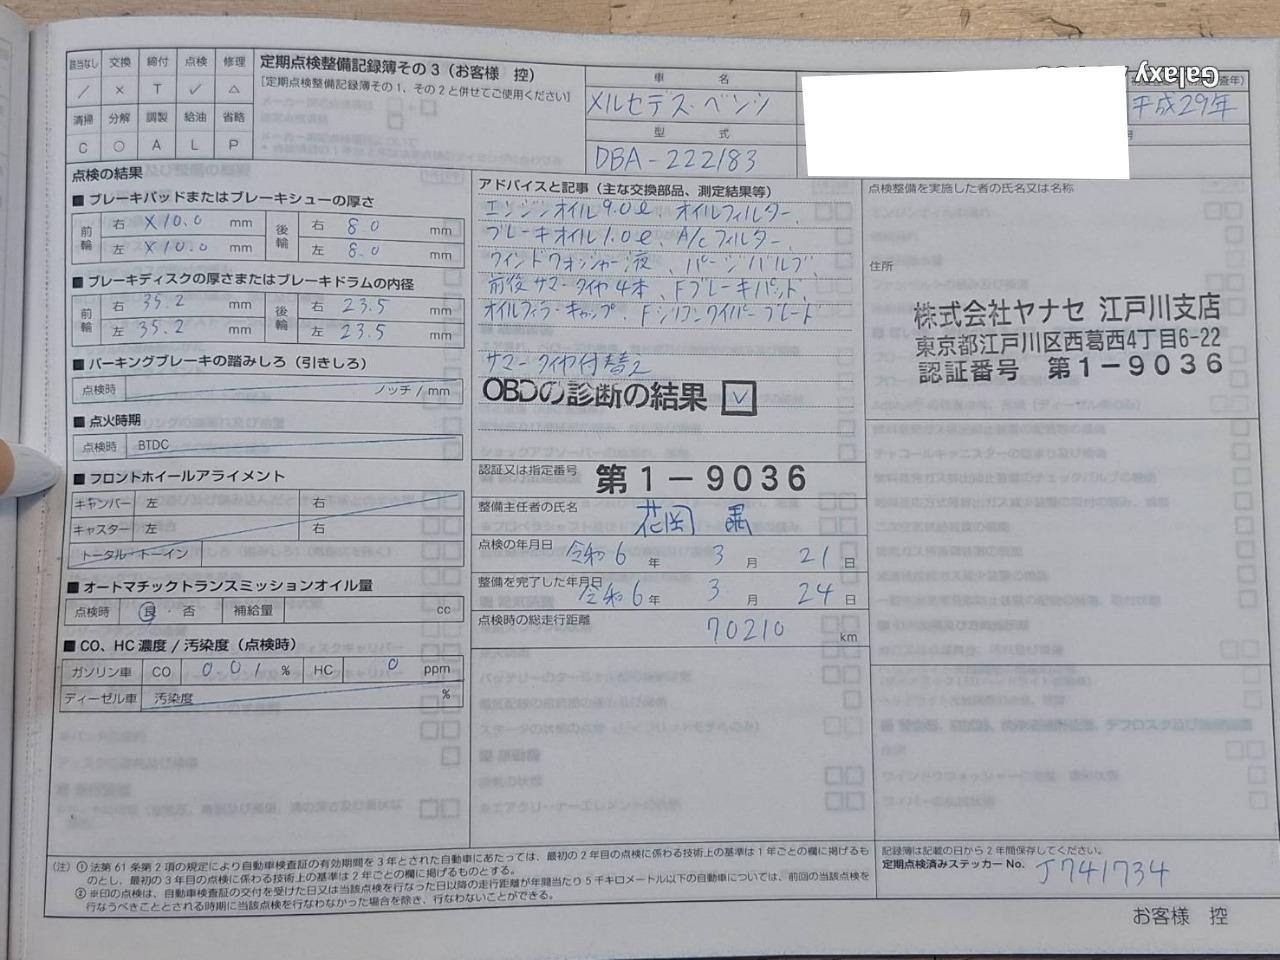 該当なし 交換 締付 点検 修理
／ × T ✓ △
清掃 分解 調製 給油 省略
C ○ A L P
定期点検整備記録簿その3（お客様 控）
[定期点検整備記録簿その1、その2と併せてご使用ください]
車 名
メルセデス・ベンツ
型 式
DBA-222183
平成29年
Galaxy
点検の結果
■ ブレーキパッドまたはブレーキシューの厚さ
前輪 右 ×10.0 mm 後輪 右 8.0 mm
左 ×10.0 mm 左 8.0 mm
■ ブレーキディスクの厚さまたはブレーキドラムの内径
前輪 右 35.2 mm 後輪 右 23.5 mm
左 35.2 mm 左 23.5 mm
■ パーキングブレーキの踏みしろ（引きしろ）
点検時 ノッチ / mm
■ 点火時期
点検時 BTDC
■ フロントホイールアライメント
キャンバー 左 右
キャスター 左 右
トータル・トーイン
■ オートマチックトランスミッションオイル量
点検時 良 ・ 否 補給量 cc
■ CO、HC 濃度 / 汚染度（点検時）
ガソリン車 CO 0.01 % HC 0 ppm
ディーゼル車 汚染度 %
アドバイスと記事（主な交換部品、測定結果等）
エンジンオイル9.0ℓ オイルフィルター、
ブレーキオイル1.0ℓ、A/Cフィルター、
ウィンドウォッシャー液、パージバルブ、
前後サマータイヤ4本、Fブレーキパッド、
オイルフィラーキャップ、Fシリコンワイパーブレード
サマータイヤ付替え
OBDの診断の結果 ✓
認証又は指定番号 第1-9036
整備主任者の氏名 花岡
点検の年月日 令和6年 3月 21日
整備を完了した年月日 令和6年 3月 24日
点検時の総走行距離 70210 km
点検整備を実施した者の氏名又は名称
住所
株式会社ヤナセ 江戸川支店
東京都江戸川区西葛西4丁目6-22
認証番号 第1-9036
（注）①法第61条第2項の規定により自動車検査証の有効期間を3年とされた自動車にあたっては、最初の2年目の点検に係わる技術上の基準は1年ごとの欄に掲げるも
のとし、最初の3年目の点検に係わる技術上の基準は2年ごとの欄に掲げるものとする。
②※印の点検は、自動車検査証の交付を受けた日又は当該点検を行なった日以降の走行距離が年間当たり5千キロメートル以下の自動車については、前回の当該点検を
行なうべきこととされる時期に当該点検を行なわなかった場合を除き、行なわないことができる。
記録簿は記載の日から2年間保存してください。
定期点検済みステッカーNo. J741734
お客様 控